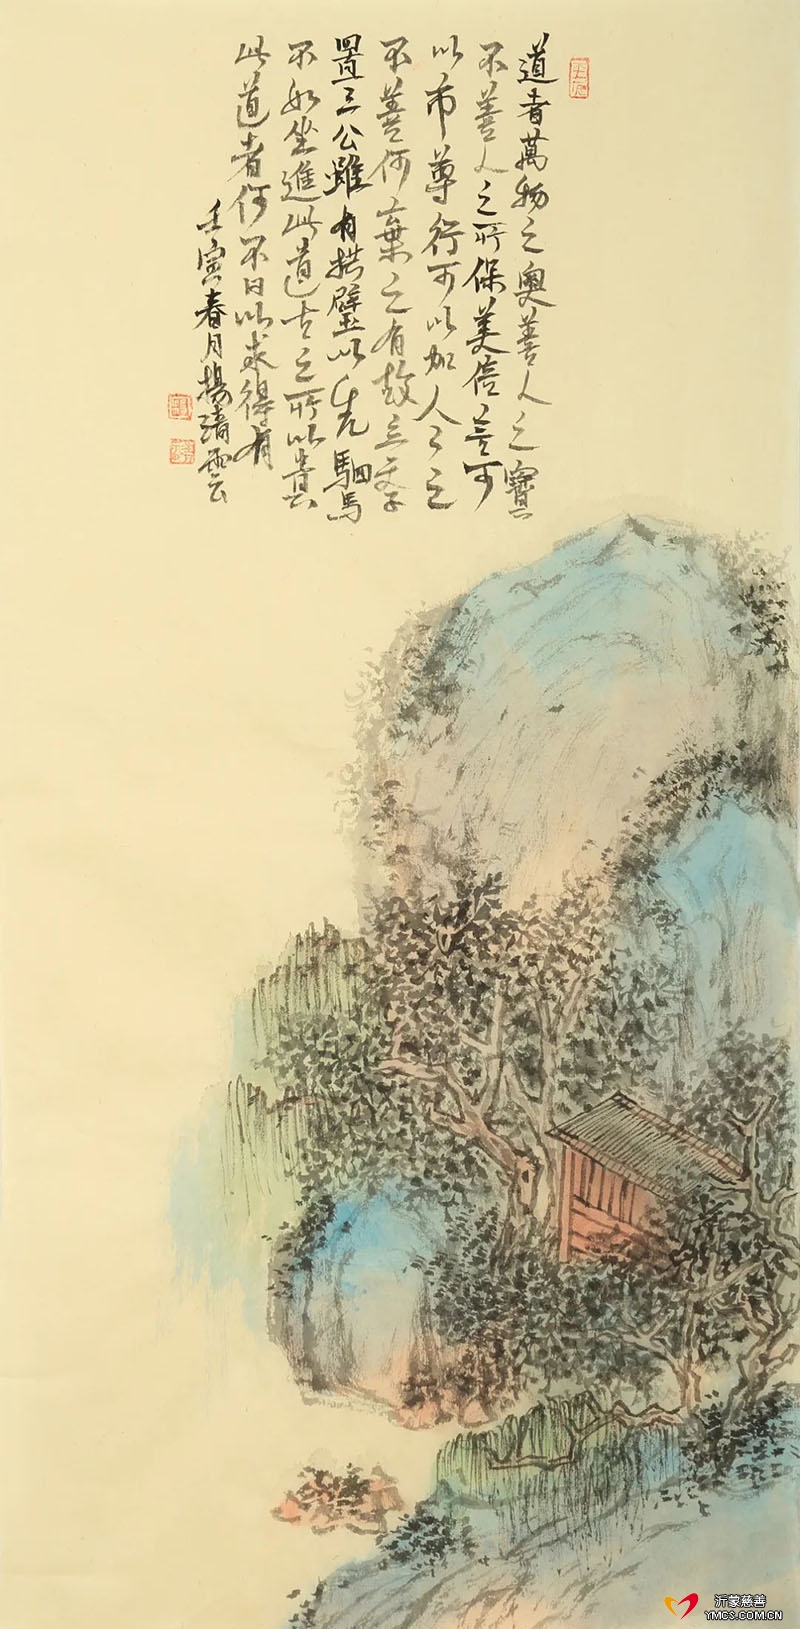 道者萬物之奧善人之寶
不善人之所保美信善可
以市尊行可以加人人之
不善何棄之有故立天子
置三公雖有拱璧以先駟馬
不如坐進此道古之所以貴
此道者何不曰以求得有
壬寅春月楊清雲
沂蒙慈善
YMCS.COM.CN